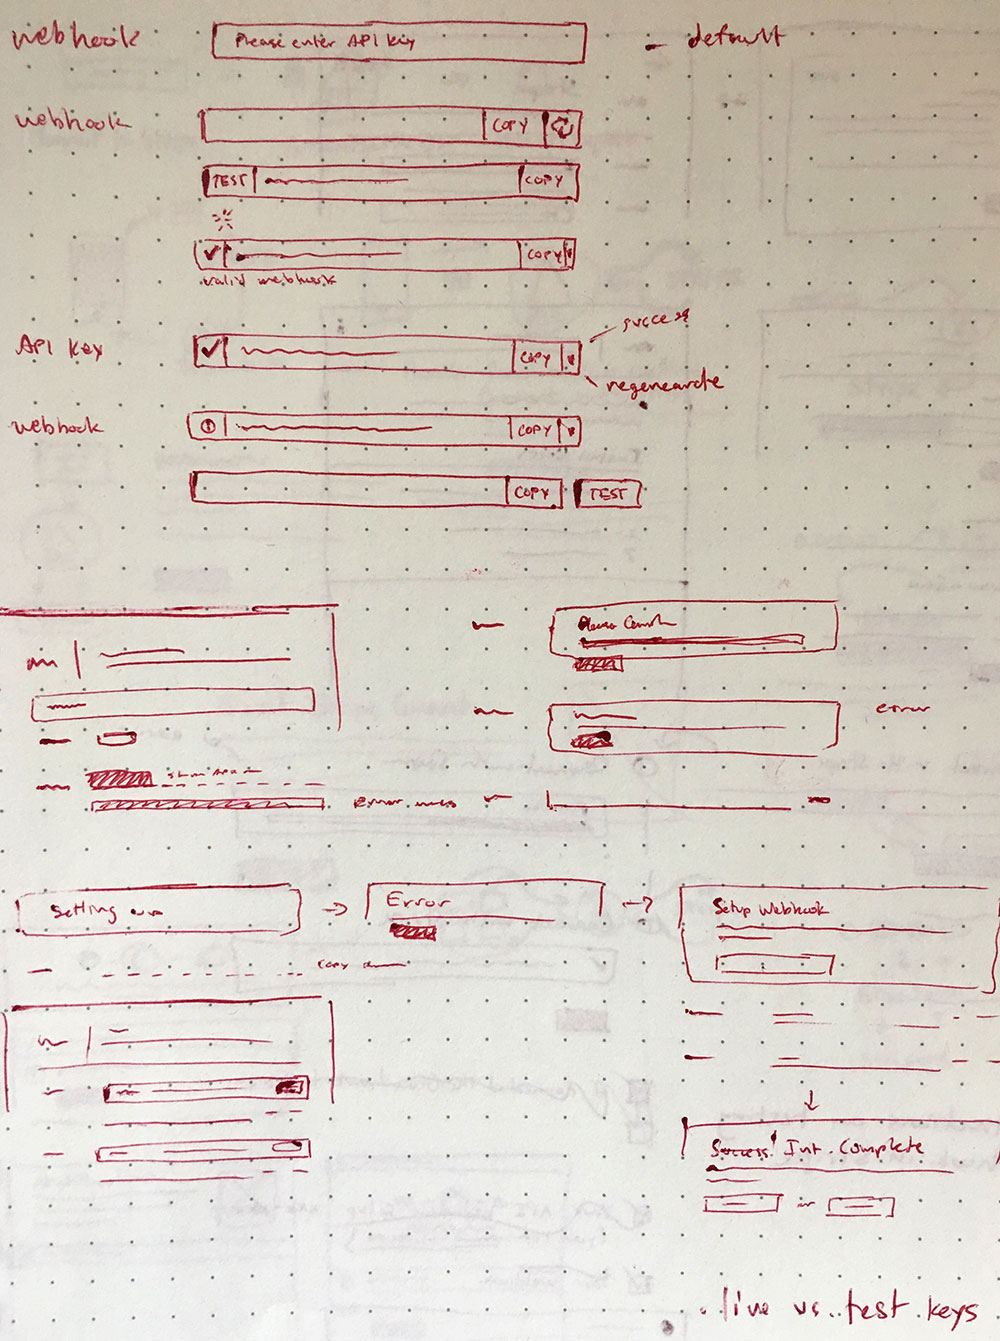 webhook Please enter API key - default
webhook COPY
TEST COPY
COPY
valid webhook
success
API key COPY
regenearate
webhook COPY
COPY TEST
Please
error
Error
Setting
Error
Setup Webhook
copy
Success! Int. Complete
or
. live vs. test keys